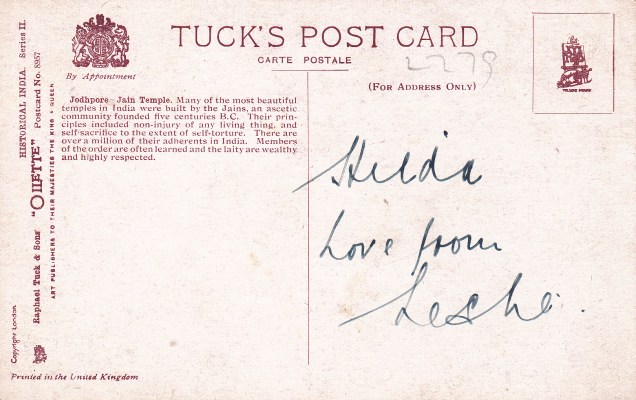 TUCK'S POST CARD
CARTE POSTALE
2279
(FOR ADDRESS ONLY)
By Appointment
Jodhpore - Jain Temple. Many of the most beautiful
temples in India were built by the Jains, an ascetic
community founded five centuries B.C. Their prin-
ciples included non-injury of any living thing, and
self-sacrifice to the extent of self-torture. There are
over a million of their adherents in India. Members
of the order are often learned and the laity are wealthy
and highly respected.
HISTORICAL INDIA. Series II.
"OILETTE" Postcard No. 8957
Raphael Tuck & Sons'
ART PUBLISHERS TO THEIR MAJESTIES THE KING & QUEEN
Copyright London
Printed in the United Kingdom
TRADE MARK
Hilda
Love from
Leslie.